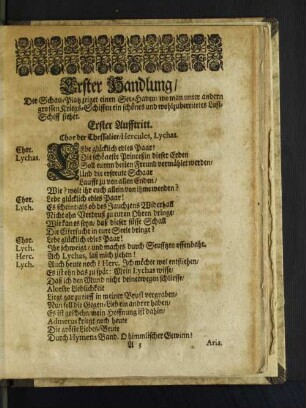 Erster Handlung/
Der Schau-Platz zeiget einen See-Haven: wo man unter andern
grossen Kriegs-Schiffen ein schönes und wohlzubereitetes Lust-
Schiff siehet.
Erster Aufftritt.
Chor der Thessalier/Hercules, Lychas.
Chor. Lebe glücklich edles Paar!
Lychas. Die schöneste Princeßin dieser Erden
Soll euren besten Freund vermählet werden/
Und die erfreute Schaar
Laufft zu von allen Enden/
Wie? wolt ihr euch allein von ihm wenden?
Chor. Lebe glücklich edles Paar!
Lych. Es scheint als ob des Jauchzens Wiederhall
Nicht ohn Verdruß zu euren Ohren dringe/
Wie kan es seyn/ daß dieser süsse Schall
Die Eifersucht in eure Seele bringe?
Chor. Lebe glücklich edles Paar!
Lych. Ihr schweigt/ und machts durch Seuffzen offenbahr.
Herc. Ach Lychas, laß mich ziehen!
Lych. Auch heute noch? Herc. Ich möchte wol entfliehen/
Es ist ihn das zu spät: Mein Lychas wisse/
Daß ich den Mund nicht
Alceste Lieblichkeit
Liegt gar zu tieff in meiner Brust vergraben/
Nun soll die Gegen-Lieb ein andrer haben/
Es ist geschehn/ mein Hoffnung ist dahin/
Admetus kriegt noch heute
Die grosse Liebes-Beute
Durch Hymens Band. O himmlischer Gewinn!
A 3 Aria.